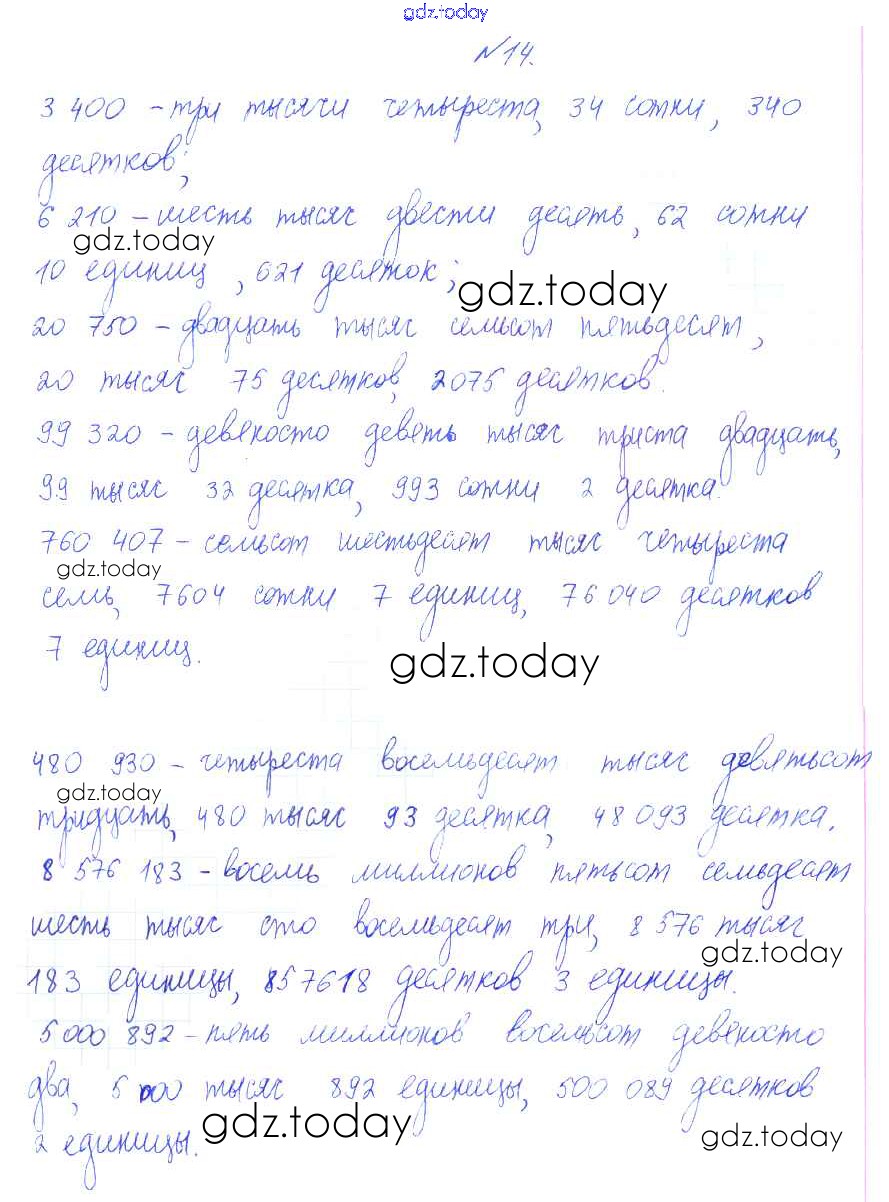 gdz.today
№14.
3 400 – три тысячи четыреста, 34 сотни, 340
десятков;
6 210 – шесть тысяч двести десять, 62 сотни
gdz.today
10 единиц, 621 десяток;
gdz.today
20 750 – двадцать тысяч семьсот пятьдесят,
20 тысяч 75 десятков, 2075 десятков.
99 320 – девяносто девять тысяч триста двадцать,
99 тысяч 32 десятка, 993 сотни 2 десятка.
760 407 – семьсот шестьдесят тысяч четыреста
gdz.today
семь, 7604 сотни 7 единиц, 76 040 десятков
7 единиц.
gdz.today
480 930 – четыреста восемьдесят тысяч девятьсот
gdz.today
тридцать, 480 тысяч 93 десятка, 48 093 десятка.
8 576 183 – восемь миллионов пятьсот семьдесят
шесть тысяч сто восемьдесят три, 8 576 тысяч
gdz.today
183 единицы, 857618 десятков 3 единицы.
5 000 892 – пять миллионов восемьсот девяносто
два, 5 000 тысяч 892 единицы, 500 089 десятков
gdz.today
gdz.today
2 единицы.